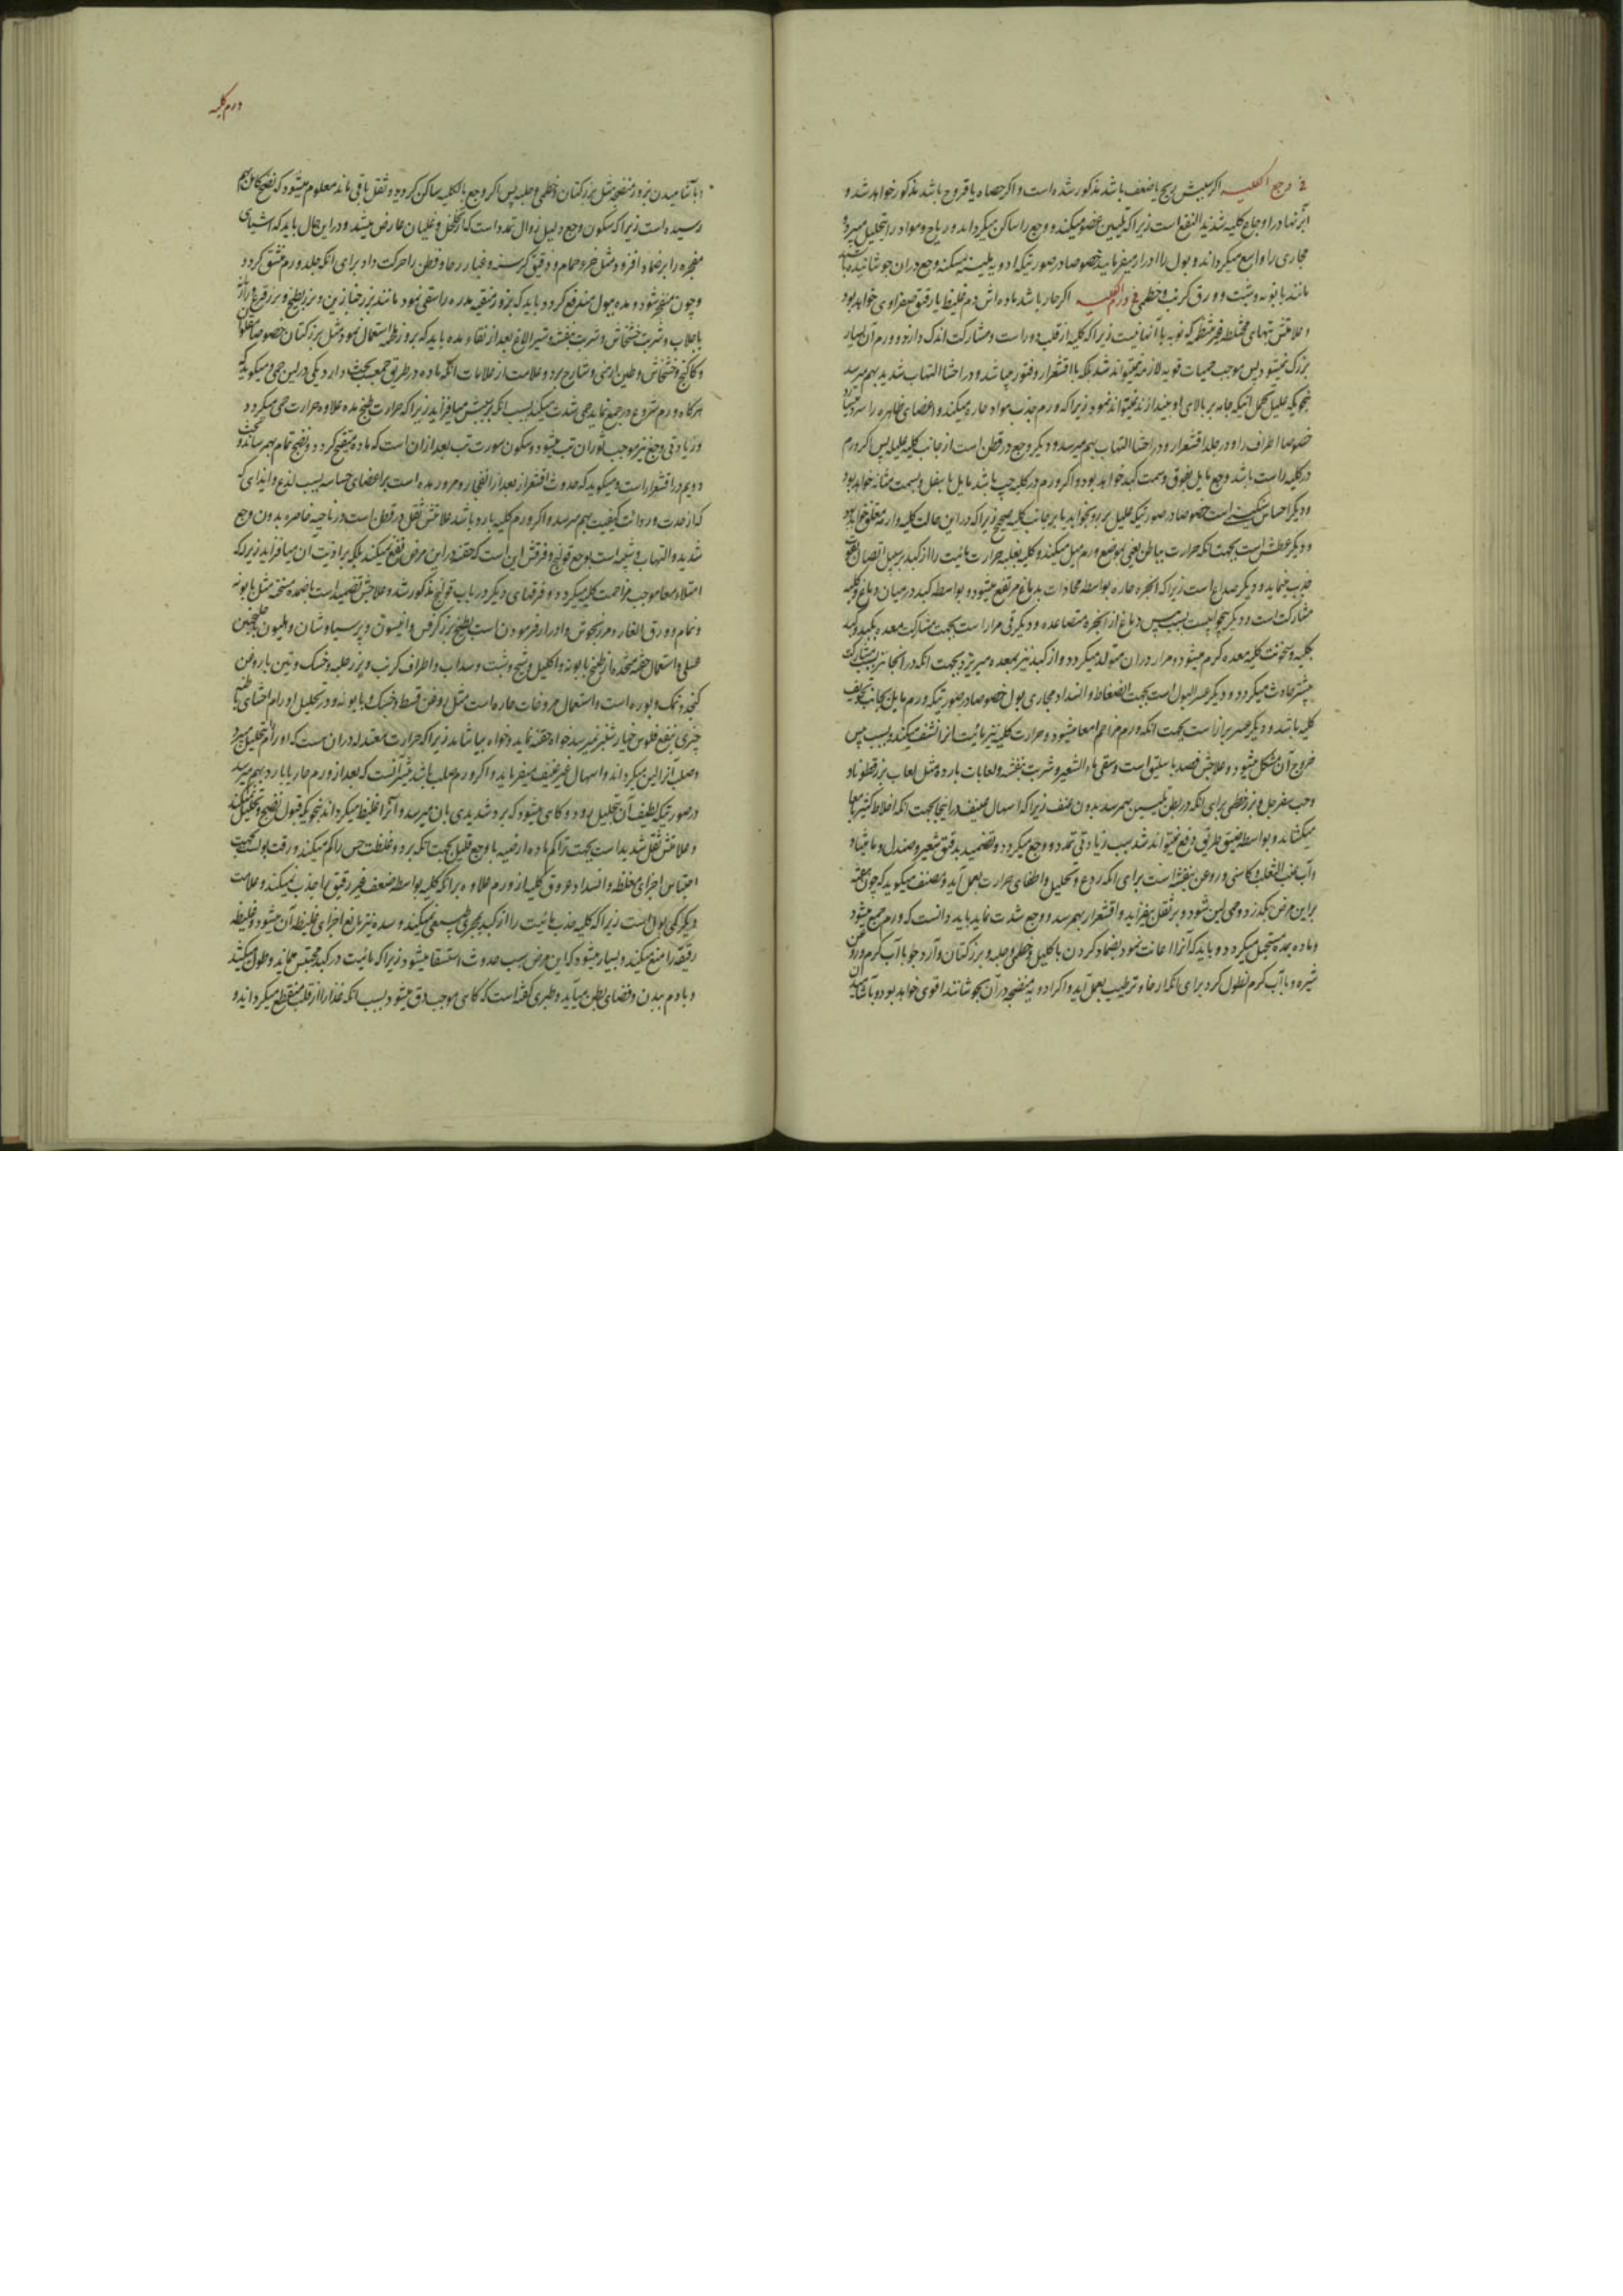 فی وجع الکلیه اکر سببش ریح یا ضعف باشد مذکور شده است و اکر حصاه یا قروح باشد مذکور خواهد شد و
ابزنها در اوجاع کلیه شدید النفع است زیرا که تلیین عضو میکند و وجع را ساکن میکرداند و ریاح و مواد را بتحلیل میبرد و
مجاری را واسع میکرداند و بول را ادرار میفرماید خصوصا در صورتیکه ادویه ملینه مسکنه وجع دران جوشانیده باشند
مانند بابونه و شبت و ورق کرنب و خطمی فی ورم الکلیه اکر حار باشد ماده اش دم غلیظ یا رقیق صفراوی خواهد بود
و علامتش تبهای مختلط غیر منتظم که نوبه با آنها نیست زیرا که کلیه از قلب دور است و مشارکت اندک دارد و ورم آن بسیار
بزرک نمیشود پس موجب حمیات قویه لازمه نمیتواند شد بلکه با اقشعرار و فتور میباشد و در احشا التهاب شدید بهم میرسد
بنحویکه علیل تحمل اینکه جامه بر بالای او بیندازند نمیتواند نمود زیرا که ورم جذب مواد حاره میکند و اعضای ظاهره را سرد میسازد
خصوصا اطراف را و در جلد اقشعرار و در احشا التهاب بهم میرسد و دیکر وجع در قطن است از جانب کلیه علیله پس اکر ورم
در کلیه راست باشد وجع مایل بفوق و سمت کبد خواهد بود و اکر ورم در کلیه چپ باشد مایل باسفل و بسمت مثانه خواهد بود
و دیکر احساس سنکینی است خصوصا در صورتیکه علیل بر رو بخوابد یا بر جانب کلیه صحیح زیرا که دراین حالت کلیه وارمه معلق خواهد بود
و دیکر عطش است بجهت انکه حرارت بباطن یعنی بموضع ورم میل میکند و کلیه بغلبه حرارت مائیت را از کبد بر سبیل اتصال
جذب مینماید و دیکر صداع است زیرا که ابخره حاره بواسطه محاذات بدماغ مرتفع میشود و بواسطه کبد در میان دماغ و کلیه
مشارکت است و دیکر بیخوابیست بسبب یبس دماغ از ابخره متصاعده و دیکر قی مرار است بجهت مشارکت معده بکبد و کبد
بکلیه و سخونت کلیه معده کرم میشود و مرار دران متولد میکردد و از کبد نیز بمعده میریزد بجهت انکه در انجا نیز بسبب مشارکت
بیشتر حادث میکردد و دیکر عسر البول است بجهت انضغاط و انسداد مجاری بول خصوصا در صورتیکه ورم مایل بجانب تجویف
کلیه باشد و دیکر عسر براز است بجهت انکه ورم مزاحم امعا میشود و حرارت کلیه نیز مائیت انرا نشف میکند و بسبب یبس
خروج آن مشکل میشود و علاجش فصد باسلیق است و سقی ماء الشعیر و شربت بنفشه و لعابات بارده مثل لعاب بزر قطونا و
حب سفرجل و بزر خطمی برای انکه در بطن تلیین بهم رسد بدون عنف زیرا که اسهال عنیف در اینجا بجهت انکه اخلاط کثیر بامعا
میکشاند و بواسطه ضیق طریق دفع نمیتواند شد سبب زیادتی تمدد و وجع میکردد و تضمید بدقیق شعیر و صندل و مامیثا و
و آب عنب الثعلب و کاسنی و روغن بنفشه است برای انکه ردع و تحلیل و اطفای حرارت بعمل آید و مصنف میکوید که چون هفته
بر این مرض بکذرد و حمی لین شود و بر ثقل بیفزاید و اقشعرار بهم رسد و وجع شدت نماید باید دانست که ورم جمع میشود
و ماده بمده مستحیل میکردد و باید که آنرا اعانت نمود بضماد کردن باکلیل و خطمی و حلبه و بزر کتان و آرد جو با آب کرم و روغن
شیره و با آب کرم نطول کرد برای انکه ارخاء و ترطیب بعمل آید و اکر ادویه منضجه در آن بجوشانند اقوی خواهد بود و بآشامیدن
ورم کلیه
و بآشامیدن بزور منضجه مثل بزر کتان و خطمی و حلبه پس اکر وجع بالکلیه ساکن کردید و ثقل باقی ماند معلوم میشود که نضج کامل بهم
رسیده است زیرا که سکون وجع دلیل زوال تمدد است که از تخلخل و غلیان عارض میشد و دراین حال باید که اشیای
مفجره را بر ضماد افزود مثل خرو حمام و دقیق کرسنه و غبار رحا و قطن را حرکت داد برای انکه جلد ورم منشق کردد
و چون منفجر شود و مده ببول مندفع کردد باید که بزور منقیه مدره را سقی نمود مانند بزر خبازین و بزر بطیخ و بزر قرع
با جلاب و شربت خشخاش و شربت بنفشه و شیر الاغ بعد از نقاء مده باید که بزور ملحمه استعمال نمود مثل بزر کتان خصوصا مقلوا
و کاکنج و خشخاش و طین ارمنی و شارح برد و علامت از علامات انکه ماده در طریق جمعست بحث دارد یکی در لین حمی و میکوید که
هرکاه ورم شروع در جمع نماید حمی شدت میکند بسبب انکه بر سببش میافزاید زیرا که حرارت طبخ مده علاوه حرارت حمی میکردد
و زیادتی وجع نیز موجب ثوران تب میشود و سکون سورت تب بعد ازان است که ماده متقیح کردد و نضج تمام بهم رساند و بحث
دویم در اقشعرار است و میکوید که حدوث اقشعرار بعد از انفجار و مرور مده است بر اعضای حساسه بسبب لذع و ایذای که
که از حدت و رداءت کیفیت بهم میرسد و اکر ورم کلیه بارد باشد علامتش ثقل در قطن است در ناحیه خاصره بدون وجع
شدید و التهاب و شبیه است بوجع قولنج و فرقش این است که حقنه در این مرض نفع نمیکند بلکه بر اذیت آن میافزاید زیرا که
امتلاء معا موجب مزاحمت کلیه میکردد و فرقهای دیکر در باب قولنج مذکور شد و علاجش تضمید است باضمده مسخنه مثل بابونه
و نمام و ورق الغار و مرزنجوش و ادرار فرمودن است بطبخ بزر کرفس و انیسون و پرسیاوشان و هلیون
عسلی و استعمال حقنه متخذه از طبخ بابونه و اکلیل و شیح و شبت و سداب و اطراف کرنب و بزر حلبه و خسک و تین با روغن
کنجد و نمک و بوره است و استعمال مروخات حاره است مثل روغن قسط و خسک و بابونه و در تحلیل اورام احشای باطنه
چیزی بنفع فلوس خیار شنبر نمیرسد خواه حقنه نماید و خواه بیاشامد زیرا که حرارت معتدله دران هست که اورام را تحلیل میبرد
و صلب آنرا لین میکرداند و اسهال غیر عنیف میفرماید و اکر ورم صلب باشد بیشتر آنست که بعد از ورم حار یا بارد بهم میرسد
در صورتیکه لطیف آن بتحلیل رود و کاهی میشود که برد شدیدی بان میرسد و آنرا غلیظ میکرداند بنحویکه قبول نضج و تحلیل نمیکند
و علامتش ثقل شدید است بجهت تراکم ماده ارضیه با وجع قلیل بجهت انکه برد و غلظت حس را کم میکند و رقت بول است بجهت
احتباس اجزای مغلظه و انسداد عروق کلیه از ورم علاوه بر انکه کلیه بواسطه ضعف غیر رقیق را جذب نمیکند و علامت
دیکر کمی بول است زیرا که کلیه جذب مائیت را از کبد بمجری طبیعی نمیکند و سده نیز مانع اجزای غلیظه آن میشود و غلیظه
رقیقه را منع میکند و بسیار میشود که این مرض سبب حدوث استسقا میشود زیرا که مائیت در کبد محتبس میماند و طول میکشد
و با دم ببدن و فضای بطن میآید و طبری کفته است که کاهی موجب دق میشود بسبب انکه غذا را از قلب منقطع میکرداند و